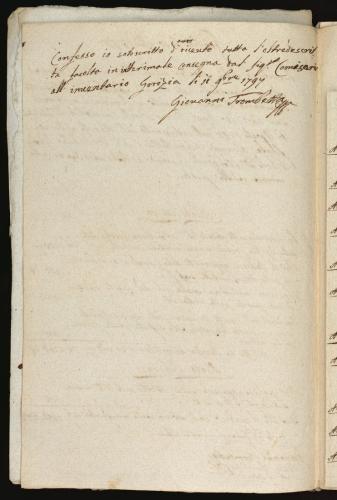 Confesso io sotoscritto d'aver riceuto tutta l'oltredescrit
ta facoltà in interimale consegna dal Sigr Comissario
all' inventario Gorizia li 11 9bre 1794
Giovanni Trombetta